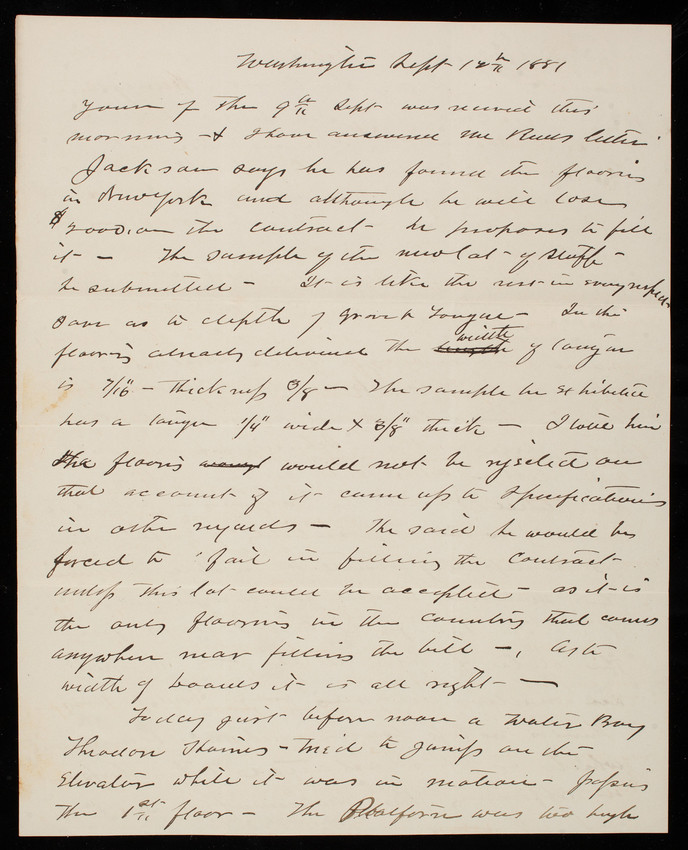 Washington Sept 12th 1881
Yours of the 9th Sept was received this
morning - & I have answered the letter
Jackson says he has found the flooring
in New York and although he will lose
$2000. on the contract - he proposes to fill
it - The sample of the new lot of stuff -
he submitted - It is like the rest in every respect
save as to depth of groove & tongue - In the
flooring already delivered the length width of tongue
is 7/16" - thickness 3/8 - The sample he exhibited
has a tongue 1/4" wide & 3/8" thick - I told him
the flooring would not be rejected on
that account if it came up to specifications
in other regards - He said he would be
forced to fail in filling the contract
unless this lot could be accepted - as it is
the only flooring in the country that comes
anywhere near filling the bill -, As to
width of boards it is all right -
Today just before noon a Water Boy
Theodore Haines - tried to jump on the
Elevator while it was in motion - passing
the 1st floor - The Platform was too high